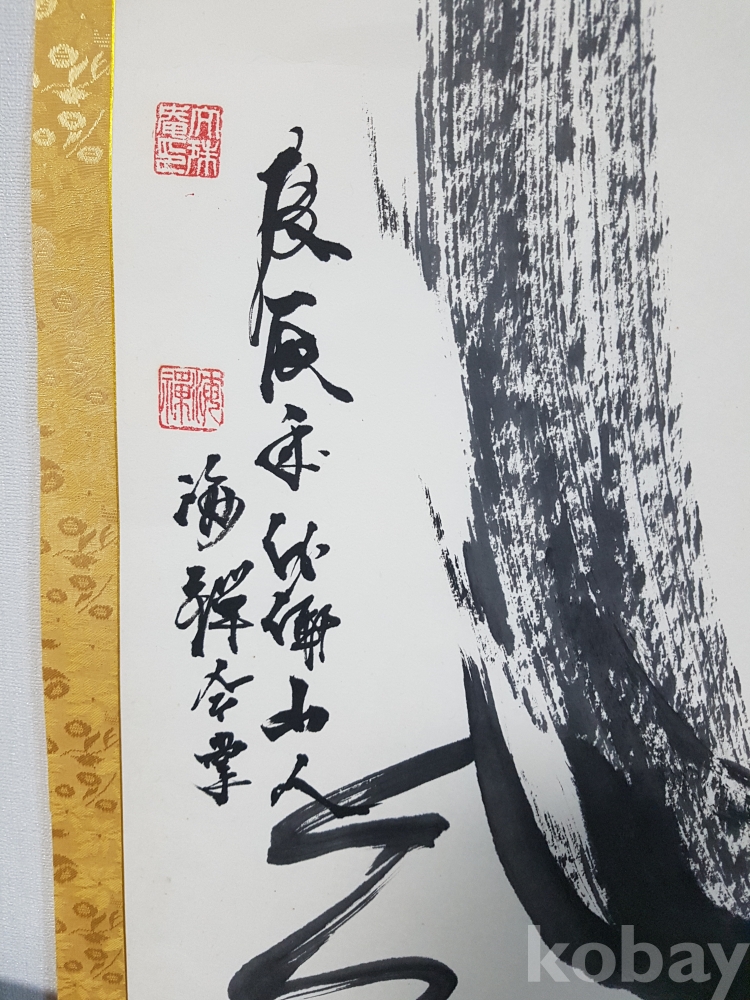 庚辰 伽倻山人
海禪合掌
文殊菴印
海禪
kobay